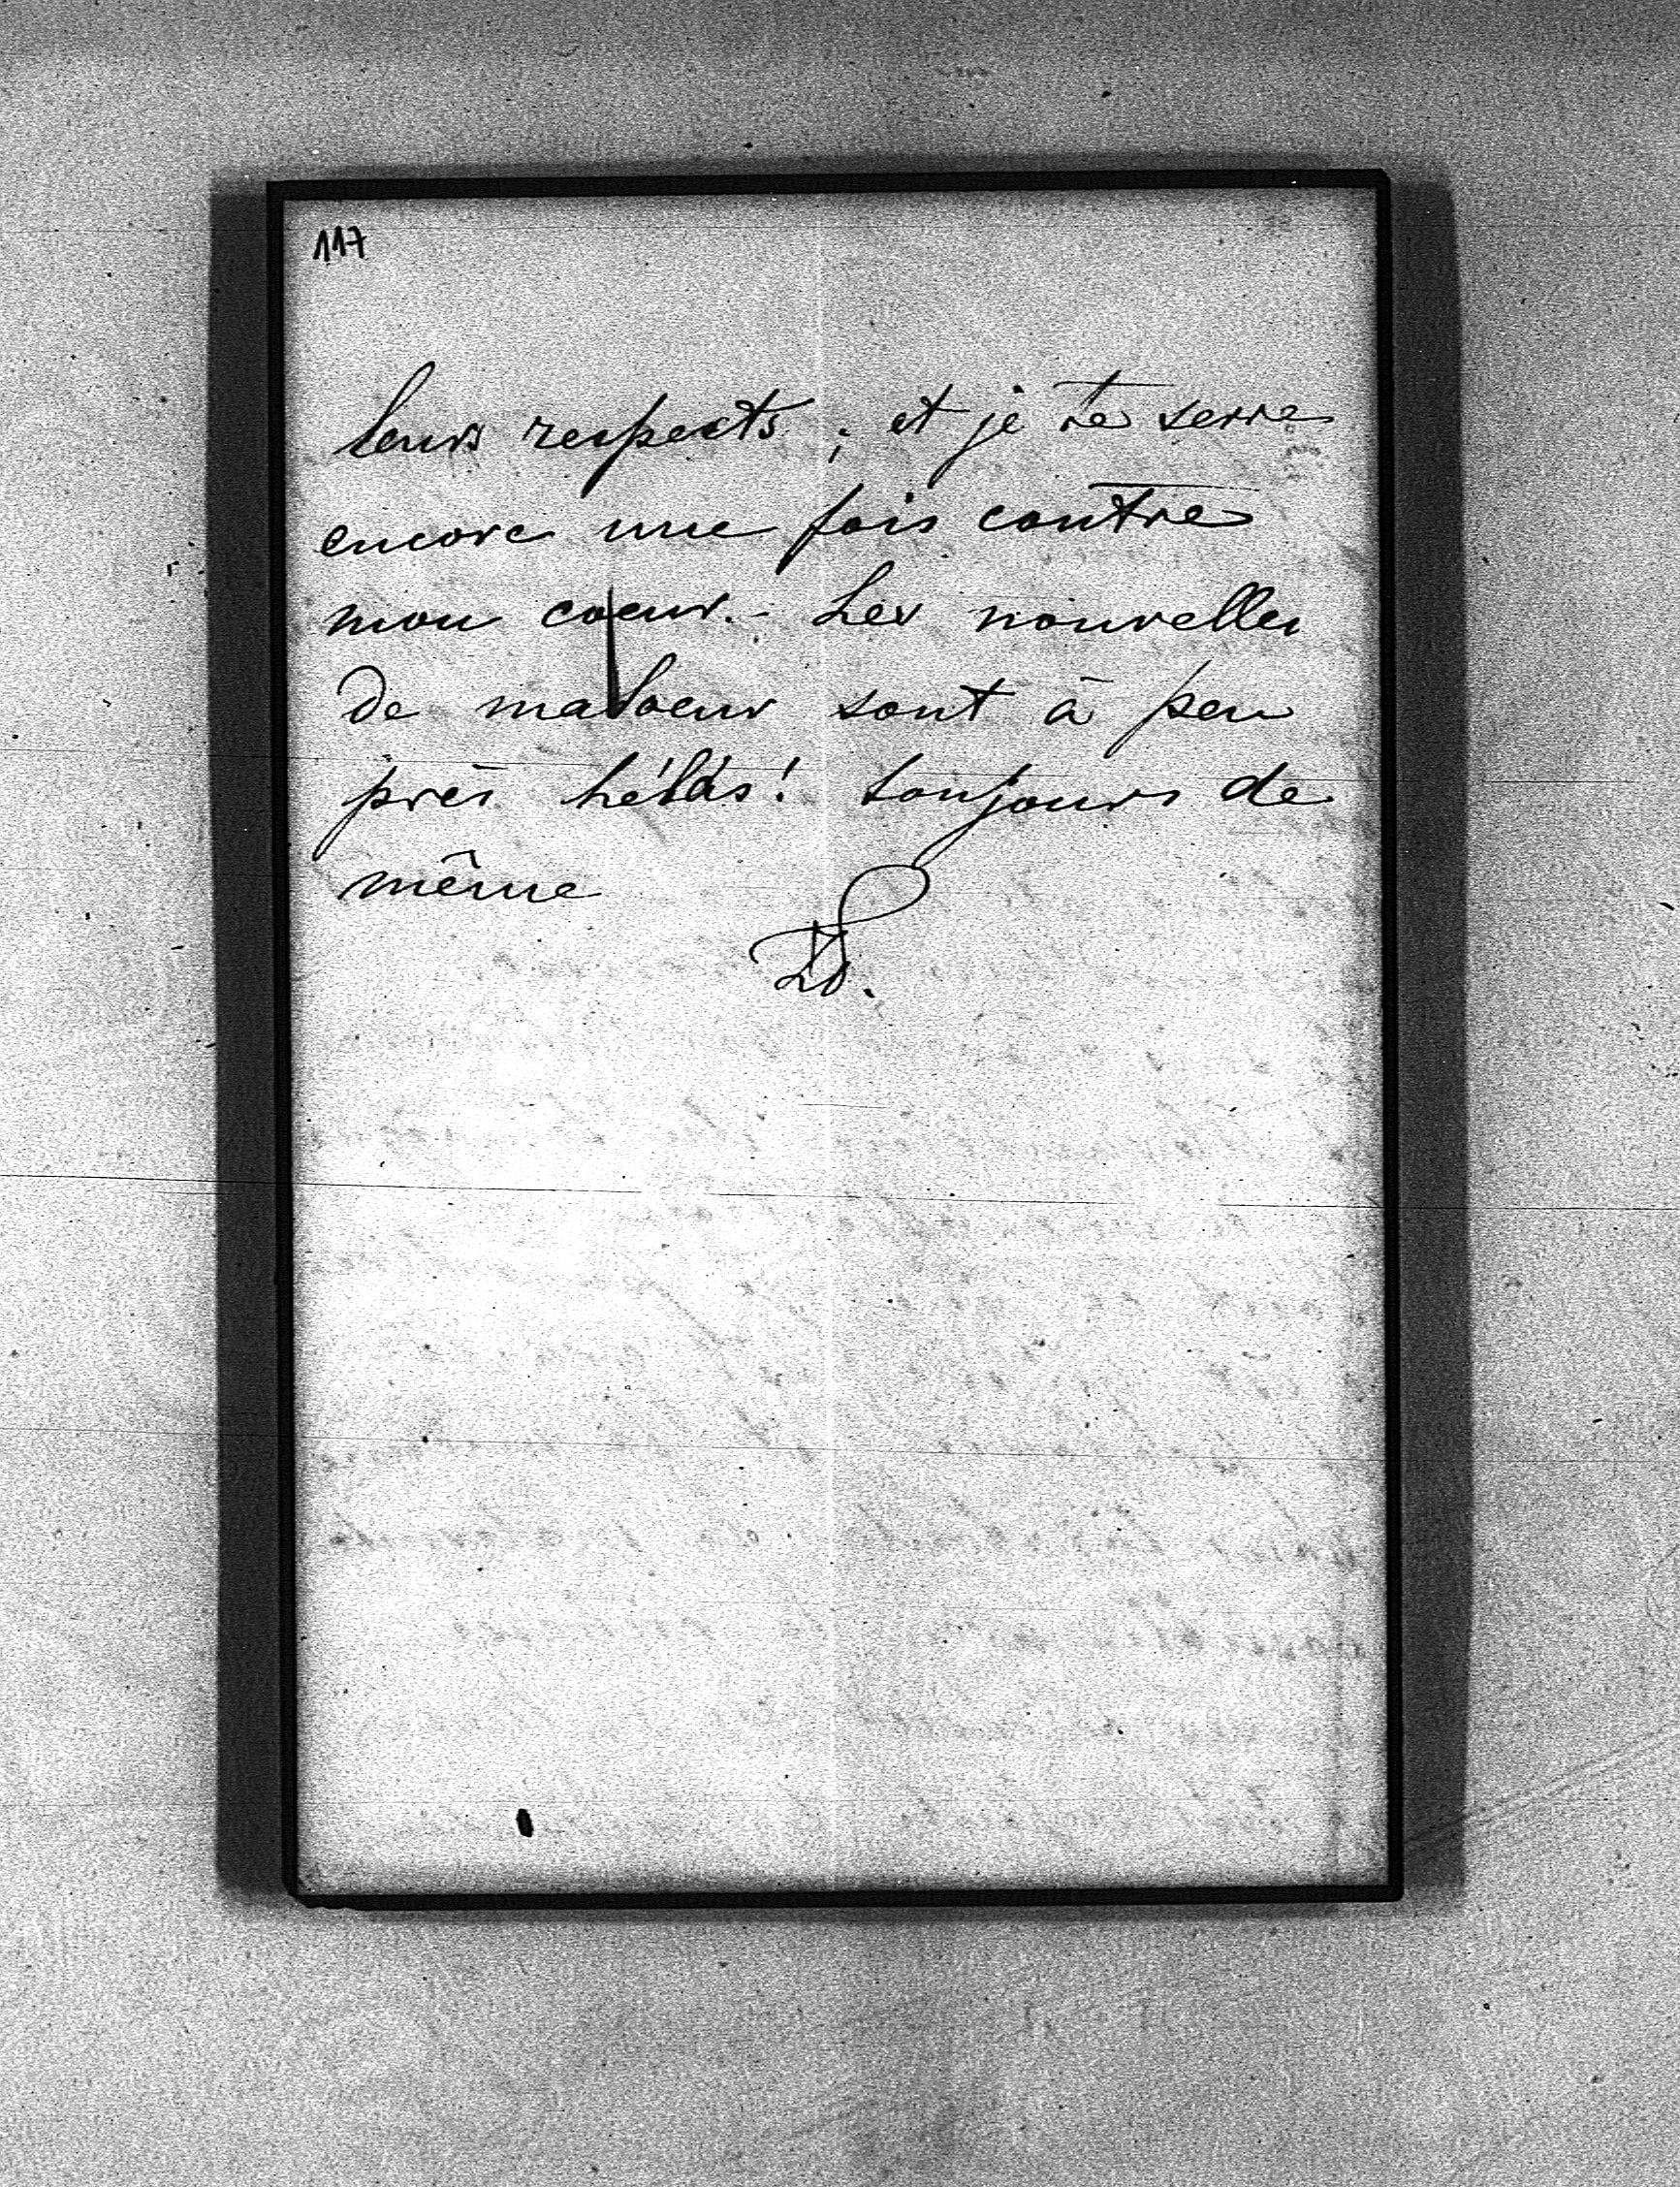 117
leurs respects ; et je te serre
encore une fois contre
mon coeur. - Les nouvelles
de ma soeur sont à peu
près hélas! toujours de
même